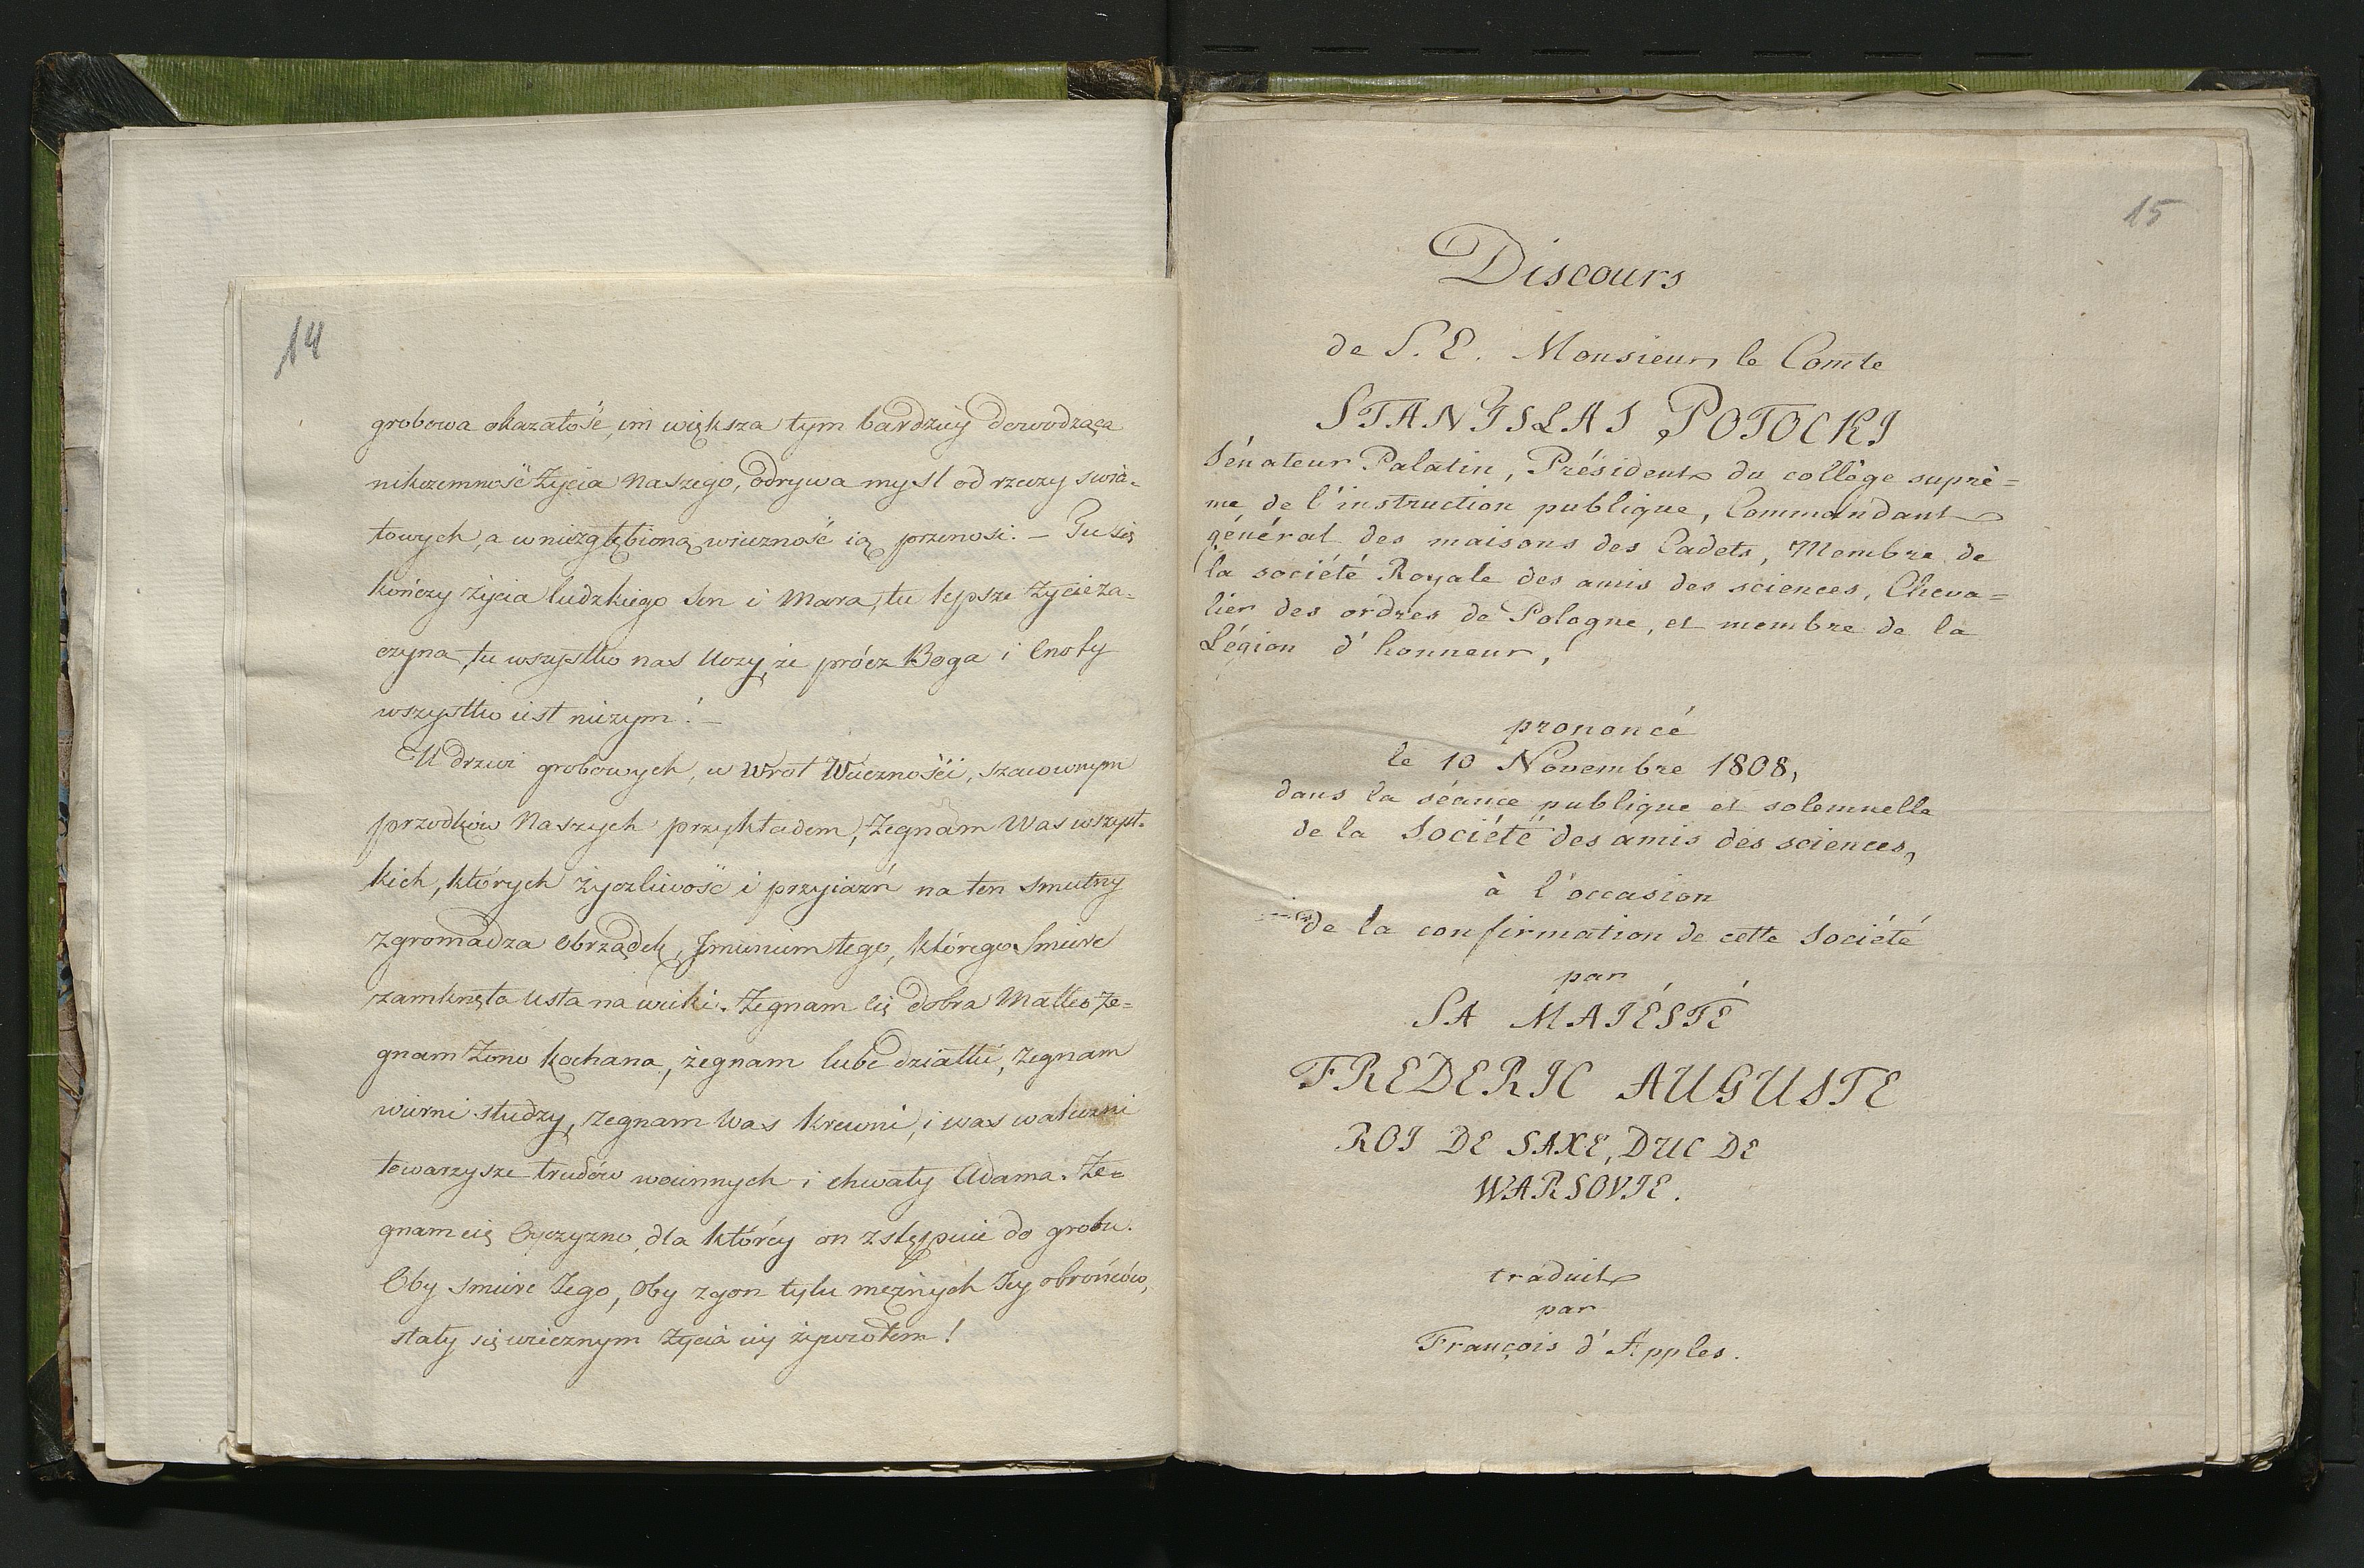 14
grobowa okazałość, im większa tym bardziey dowodząca
nikczemność Życia Naszego, odrywa mysl od rzeczy swia-
towych, a w niezgłębioną wieczność ią przenosi. – Tu się
kończy życia ludzkiego Sen i Mara, tu lepsze Życie za-
czyna, tu wszystko nas Uczy, że prócz Boga i Cnoty
wszystko iest niczym! –
U drzwi grobowych, u Wrot Wieczności, szacownym
przodków Naszych przykładem, Żegnam Was wszyst-
kich, których życzliwość i przyiaźń na ten smutny
zgromadza Obrządek, Imieniem tego, którego Smierć
zamknęła Usta na wieki. Żegnam Cię dobra Matko że=
gnam Żono kochana, żegnam lube dziatki, Żegnam
wierni słudzy, żegnam Was krewni, i was waleczni
towarzysze trudów woiennych i chwały Adama. Że=
gnam cię Oyczyzno, dla którey on zstępuie do grobu.
Oby smierć Jego, Oby zgon tylu mężnych Jey obrońców,
stały się wiecznym Życia iey żywiołem!
15
Discours
de S. E. Monsieur le Comte
STANISLAS POTOCKI
Sénateur Palatin, Président du collège suprè=
me de l'instruction publique, Commandant
général des maisons des Cadets, Membre de
la société Royale des amis des sciences, Cheva=
lier des ordres de Pologne, et membre de la
Légion d'honneur,
prononcé
le 10 Novembre 1808,
dans la séance publique et solemnelle
de la Société des amis des sciences,
à l'occasion
de la confirmation de cette Société
par
SA MAJÉSTÉ
FREDERIC AUGUSTE
ROI DE SAXE, DUC DE
WARSOVIE.
traduit
par
François d'Apples.